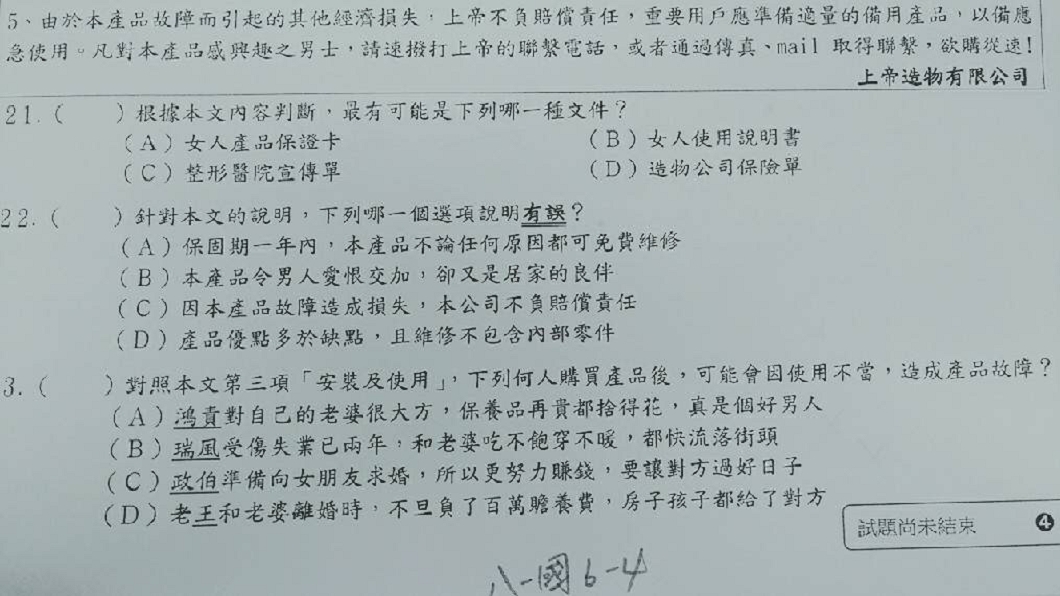 5、由於本產品故障而引起的其他經濟損失，上帝不負賠償責任，重要用戶應準備適量的備用產品，以備應
急使用。凡對本產品感興趣之男士，請速撥打上帝的聯繫電話，或者通過傳真、mail 取得聯繫，欲購從速！
上帝造物有限公司
21.（　　）根據本文內容判斷，最有可能是下列哪一種文件？
（A）女人產品保證卡　　（B）女人使用說明書
（C）整形醫院宣傳單　　（D）造物公司保險單
22.（　　）針對本文的說明，下列哪一個選項說明有誤？
（A）保固期一年內，本產品不論任何原因都可免費維修
（B）本產品令男人愛恨交加，卻又是居家的良伴
（C）因本產品故障造成損失，本公司不負賠償責任
（D）產品優點多於缺點，且維修不包含內部零件
3.（　　）對照本文第三項「安裝及使用」，下列何人購買產品後，可能會因使用不當，造成產品故障？
（A）鴻貴對自己的老婆很大方，保養品再貴都捨得花，真是個好男人
（B）瑞風受傷失業已兩年，和老婆吃不飽穿不暖，都快流落街頭
（C）政伯準備向女朋友求婚，所以更努力賺錢，要讓對方過好日子
（D）老王和老婆離婚時，不旦負了百萬贍養費，房子孩子都給了對方
試題尚未結束　❹
八-國6-4